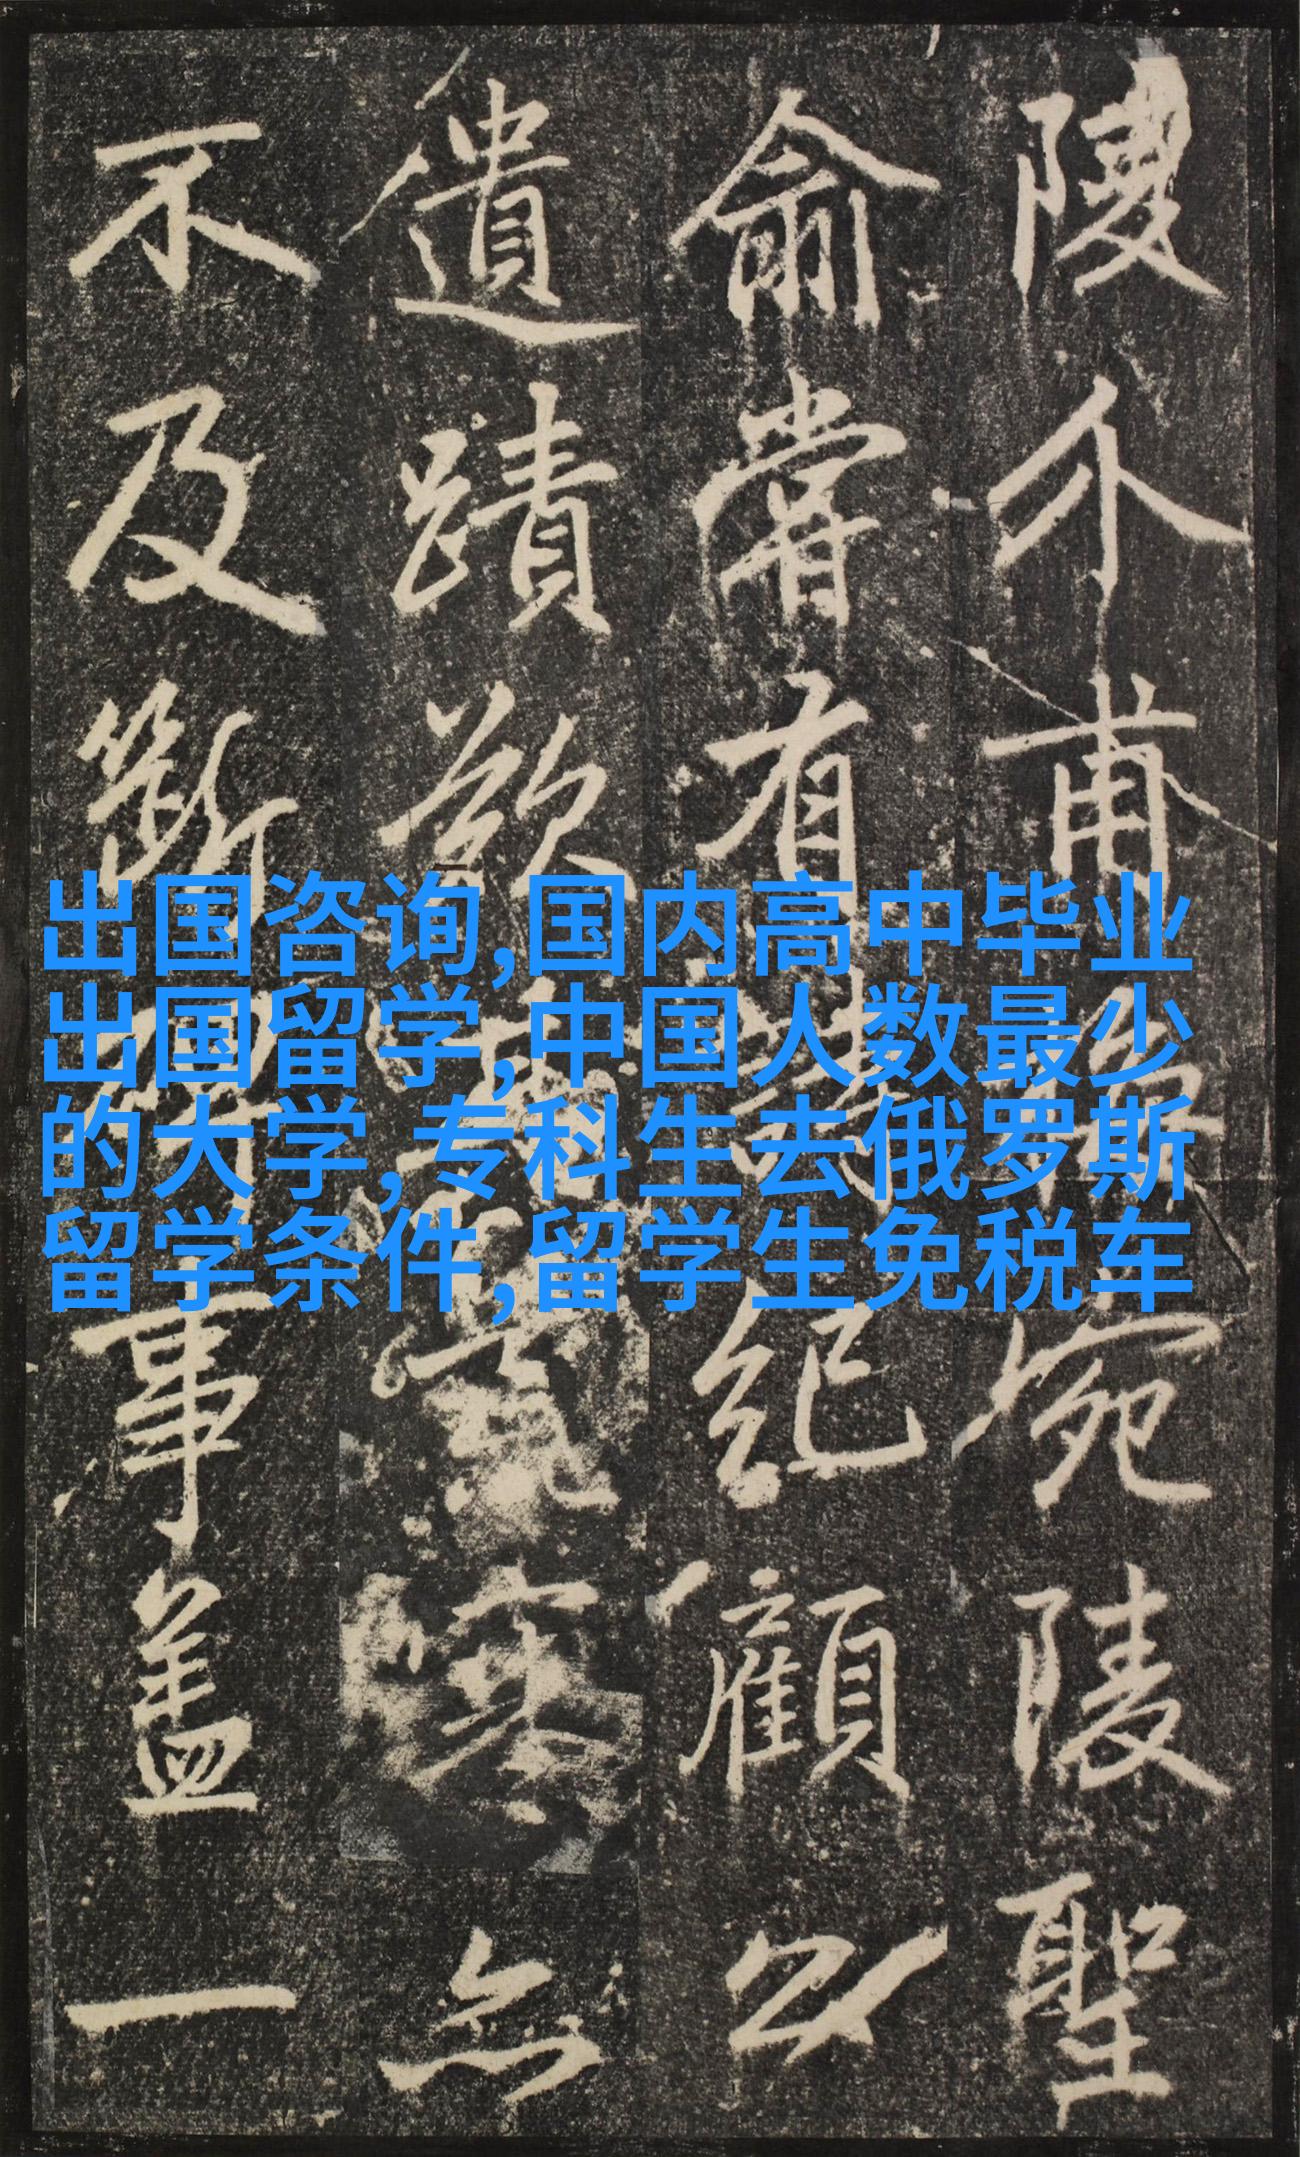 陵介甫宛陵聖
俞嘗有詩紀顧以
遺蹟欲無
不及斷碑事蓋一
出国咨询,国内高中毕业
出国留学,中国人数最少
的大学,专科生去俄罗斯
留学条件,留学生免税车